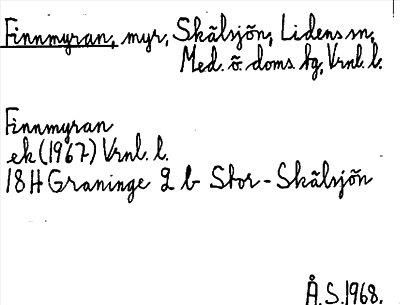 Finnmyran, myr, Skälsjön, Lidens sn,
Med. ö. doms hg, Vrnl. l.
Finnmyran
ek (1967) Vrnl. l.
18H Graninge 2 b Stor-Skälsjön
Å.S.1968.